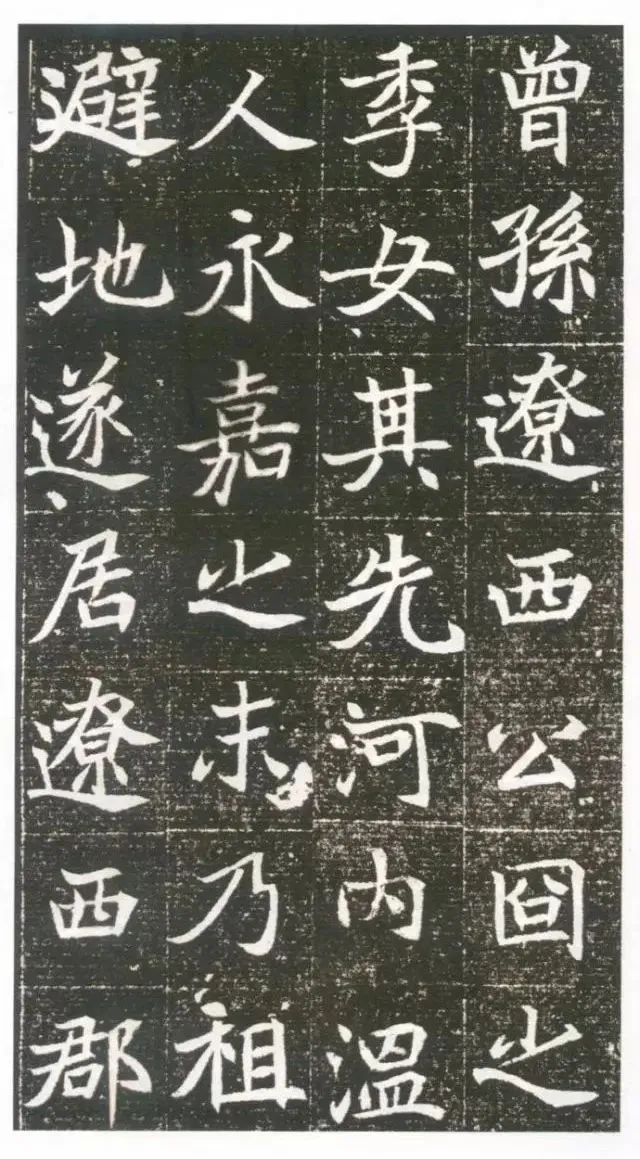 曾孫遼西公囧之
季女其先河內溫
人永嘉之末乃祖
避地遂居遼西郡